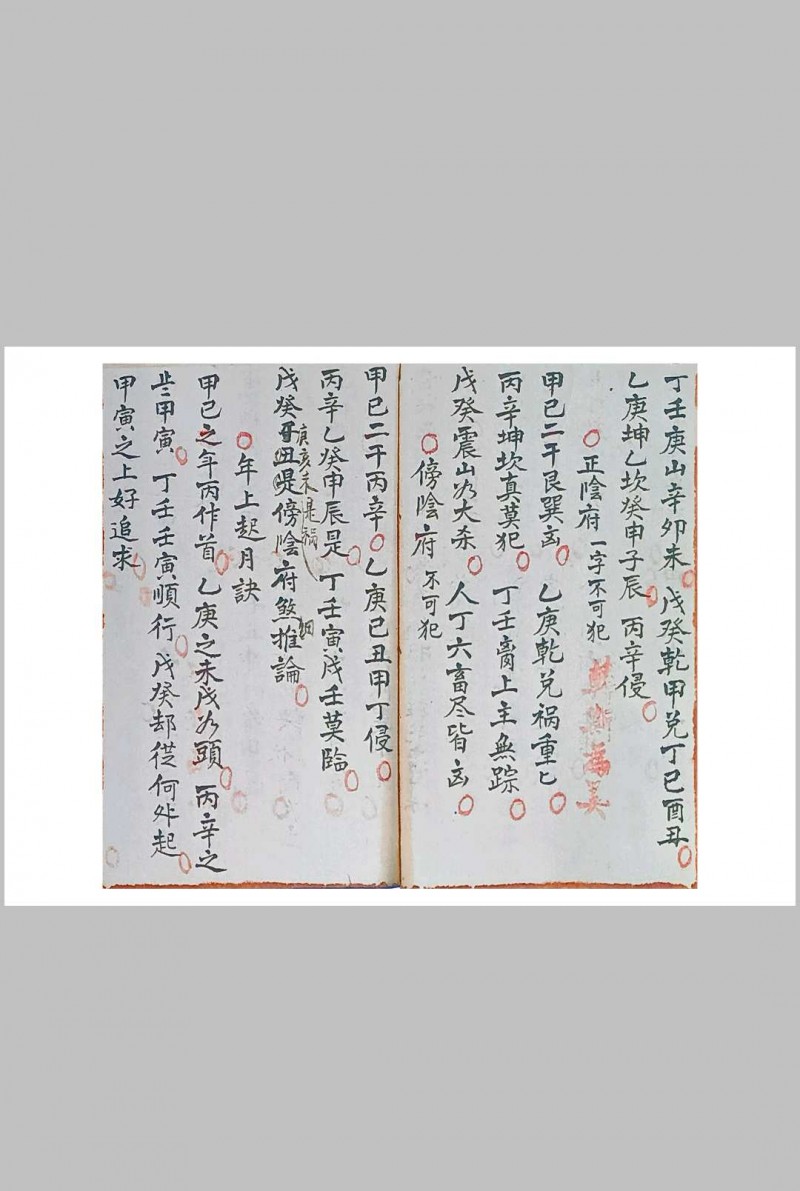 丁壬庚山辛卯未 戊癸乾甲兑丁巳酉丑
乙庚坤乙坎癸申子辰 丙辛侵
正陰府 一字不可犯
甲巳二干艮巽凶 乙庚乾兑禍重匕
丙辛坤坎真莫犯 丁壬离上主無踪
戊癸震山为大杀 人丁六畜尽皆凶
傍陰府 不可犯
甲巳二干丙辛 乙庚巳丑甲丁侵
丙辛乙癸申辰是 丁壬寅戌壬莫臨
庚亥未是禍
戊癸 丑是傍陰府煞推論
細
年上起月訣
甲巳之年丙作首 乙庚之未戊为頭 丙辛之
甲寅 丁壬壬寅順行 戊癸却從何处起
甲寅之上好追求